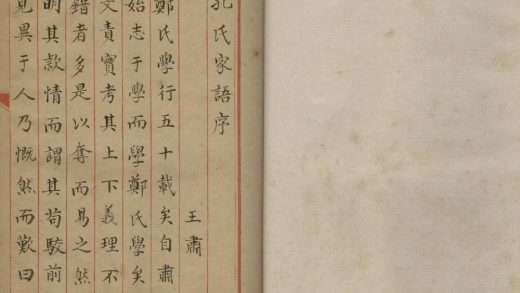 孔氏家語序
王肅
鄭氏學行五十載矣自肅
始志于學而學鄭氏學矣
文責實考其上下義理不
錯者多是以奪而易之然
明其款情而謂其苟駮前
見異于人乃慨然而歎曰